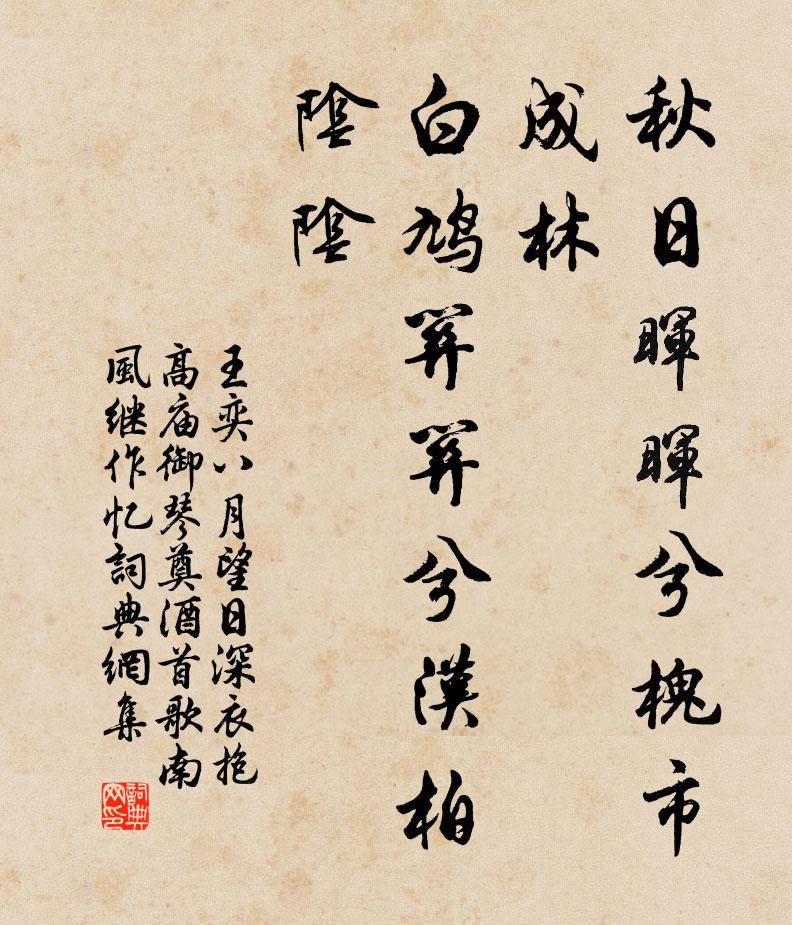 秋日暉暉兮槐市
成林
白鸠羿羿兮漢柏
陰陰
王奕八月望日深衣抱
高庙御琴奠酒首歌南
風继作忆詞典網集
詞典
网